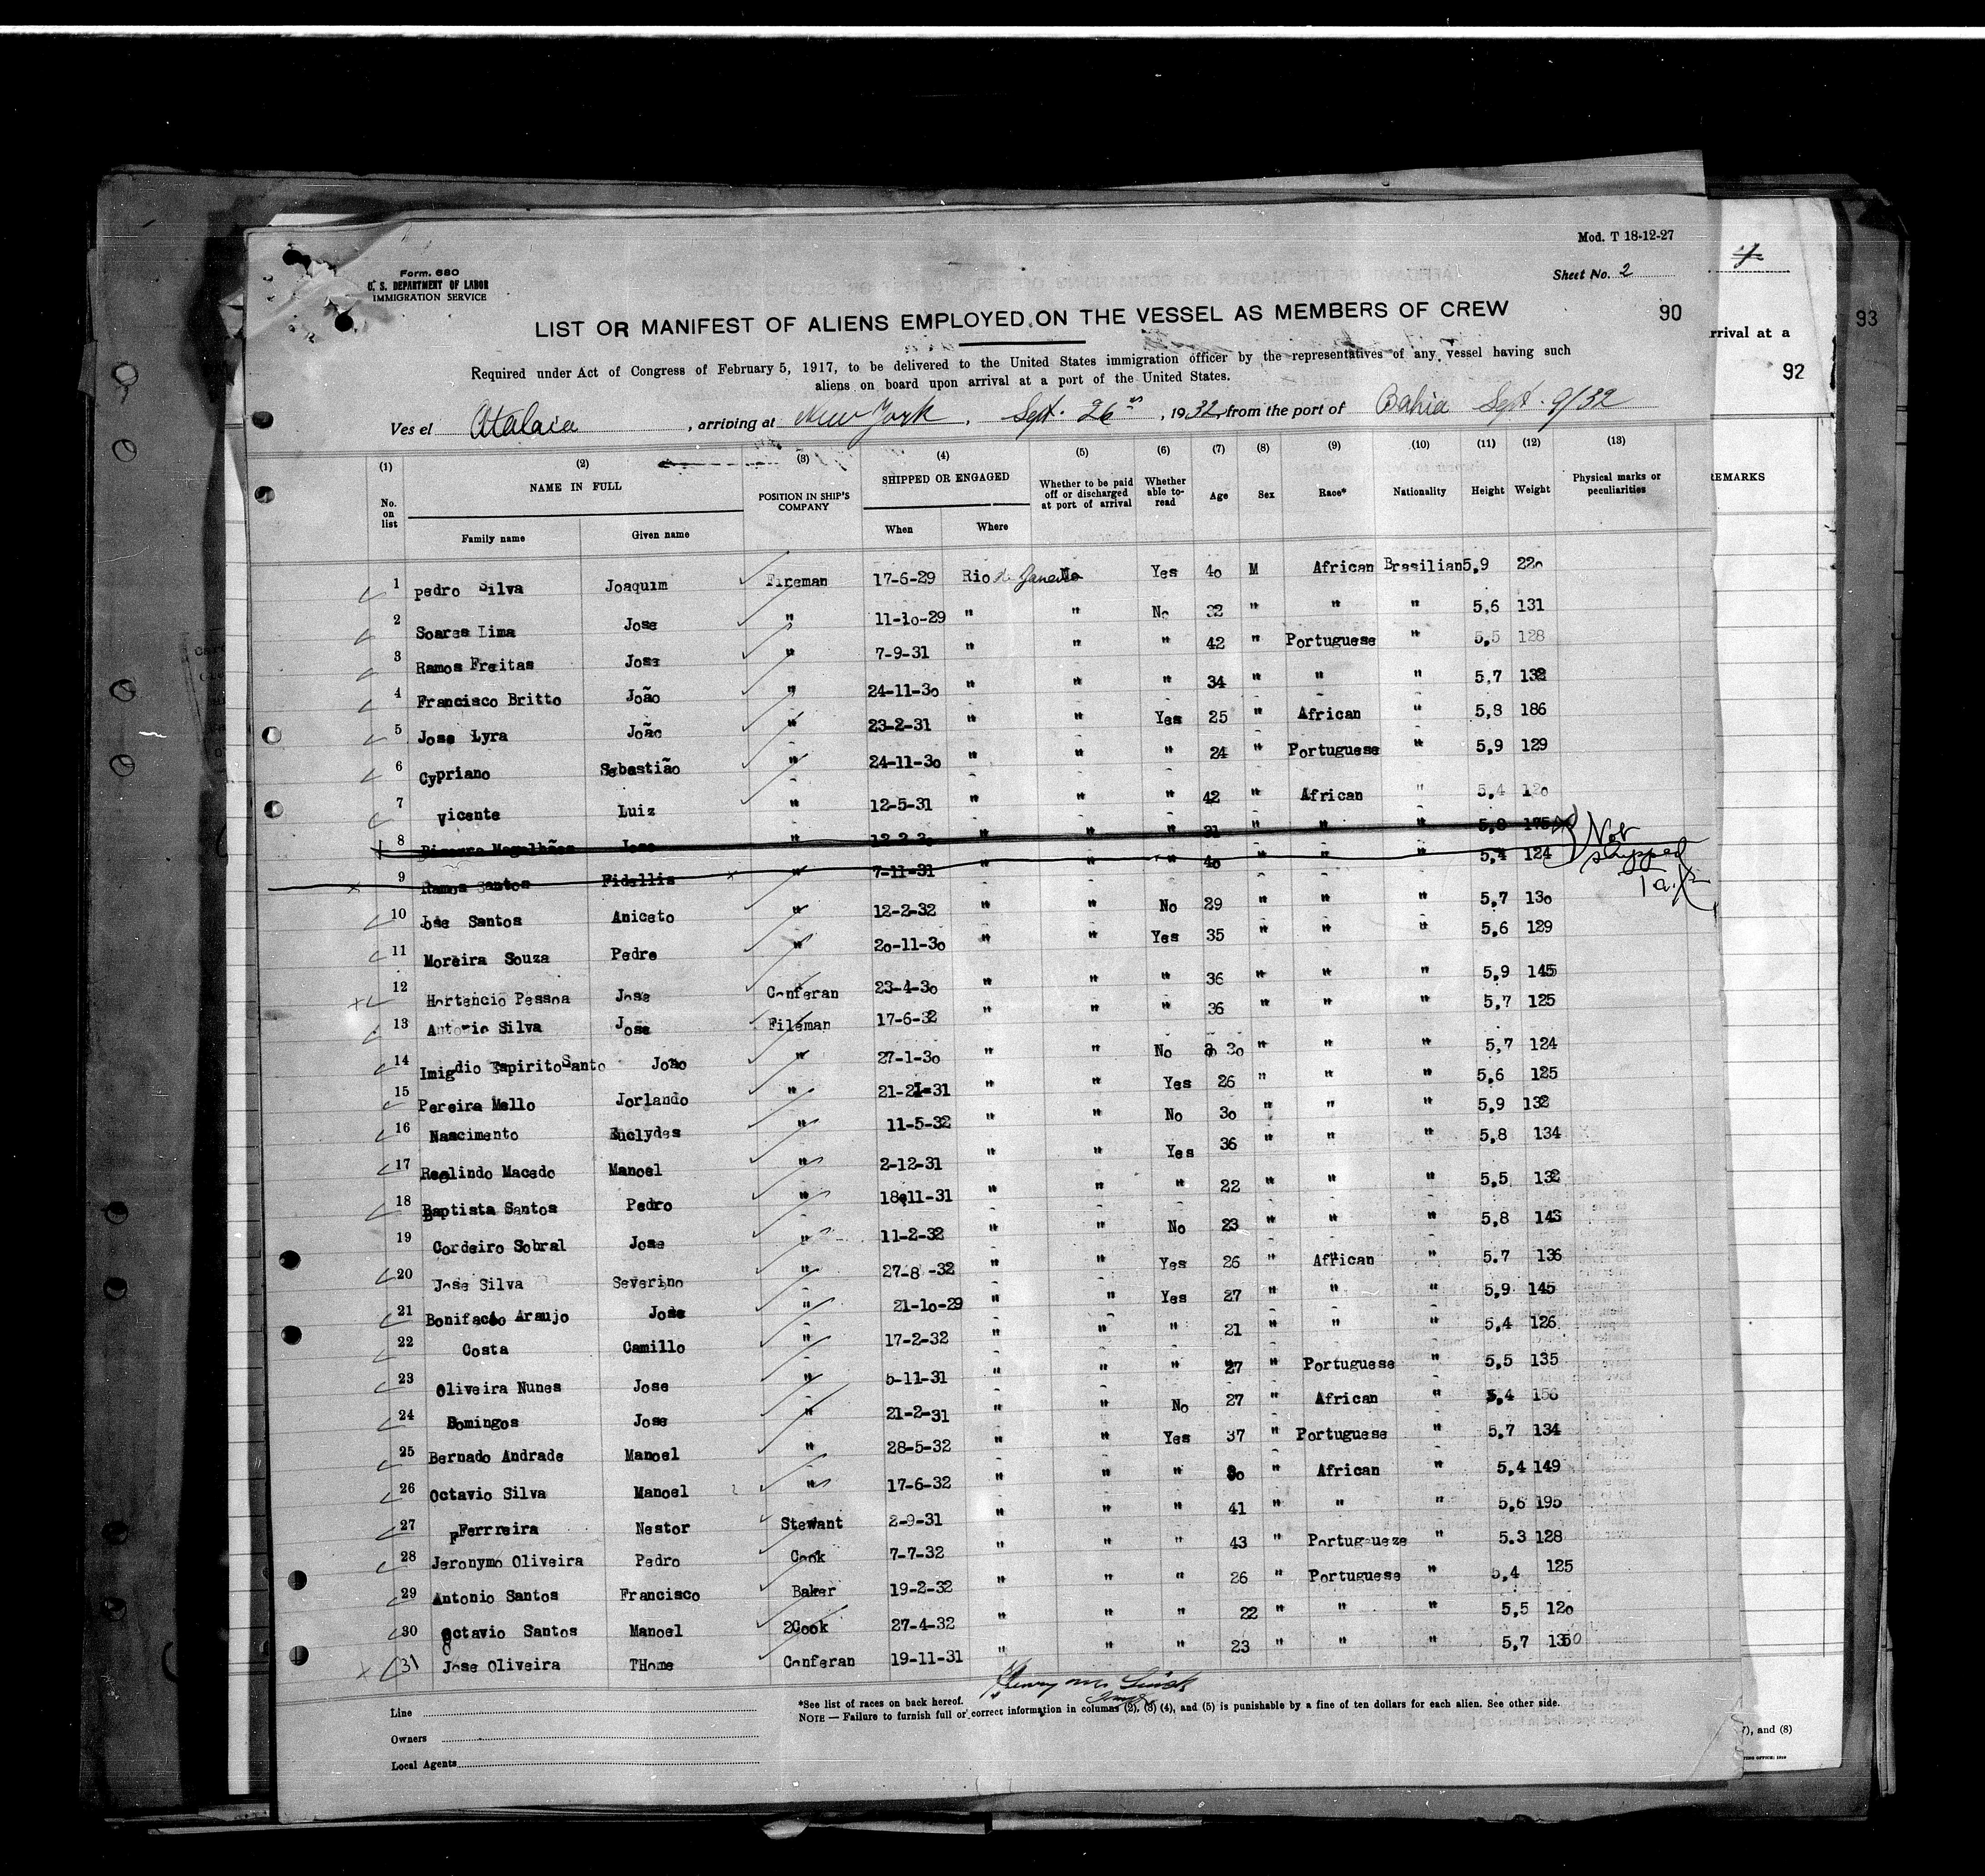 Mod. T 18-12-27
Form. 680
U. S. DEPARTMENT OF LABOR
IMMIGRATION SERVICE
Sheet No. 2
LIST OR MANIFEST OF ALIENS EMPLOYED ON THE VESSEL AS MEMBERS OF CREW
90
93
rrival at a
92
Required under Act of Congress of February 5, 1917, to be delivered to the United States immigration officer by the representatives of any vessel having such
aliens on board upon arrival at a port of the United States.
Ves el Atalaia , arriving at New York , Sept. 26th , 1932, from the port of Bahia Sept. 9/32
(1) (2) (3) (4) (5) (6) (7) (8) (9) (10) (11) (12) (13)
No. on list NAME IN FULL Family name Given name POSITION IN SHIP'S COMPANY SHIPPED OR ENGAGED When Where Whether to be paid off or discharged at port of arrival Whether able to read Age Sex Race* Nationality Height Weight Physical marks or peculiarities
REMARKS
1 pedro Silva Joaquim Fireman 17-6-29 Rio de Janeiro No Yes 40 M African Brasilian 5,9 220
2 Soares Lima Jose " 11-10-29 " " No 32 " " " 5,6 131
3 Ramos Freitas Jose " 7-9-31 " " " 42 " Portuguese " 5,5 128
4 Francisco Britto João " 24-11-30 " " " 34 " " " 5,7 132
5 Jose Lyra João " 23-2-31 " " Yes 25 " African " 5,8 186
6 Cypriano Sebastião " 24-11-30 " " " 24 " Portuguese " 5,9 129
7 Vicente Luiz " 12-5-31 " " " 42 " African " 5,4 120
8 Magalhães Jose " 12-2-30 " " " 31 " " " 5,8 175
Not shipped
9 Ramos Santos Fidellis " 7-11-31 " " " 40 " " " 5,4 124
10 Jose Santos Aniceto " 12-2-32 " " No 29 " " " 5,7 130
11 Moreira Souza Pedro " 20-11-30 " " Yes 35 " " " 5,6 129
12 Hortencio Pessoa Jose Conferan 23-4-30 " " " 36 " " " 5,9 145
13 Antonio Silva Jose Fileman 17-6-32 " " " 36 " " " 5,7 125
14 Imigdio Espirito Santo João " 27-1-30 " " No 30 " " " 5,7 124
15 Pereira Mello Jorlando " 21-21-31 " " Yes 26 " " " 5,6 125
16 Nascimento Euclydes " 11-5-32 " " No 30 " " " 5,9 132
17 Roslindo Macedo Manoel " 2-12-31 " " Yes 36 " " " 5,8 134
18 Baptista Santos Pedro " 18-11-31 " " " 22 " " " 5,5 132
19 Cordeiro Sobral Jose " 11-2-32 " " No 23 " " " 5,8 143
20 Jose Silva Severino " 27-8 -32 " " Yes 26 " African " 5.7 136
21 Bonifacio Araujo Jose " 21-10-29 " " Yes 27 " " " 5,9 145
22 Costa Camillo " 17-2-32 " " " 21 " " " 5,4 126
23 Oliveira Nunes Jose " 5-11-31 " " " 27 " Portuguese " 5,5 135
24 Domingos Jose " 21-2-31 " " No 27 " African " 5,4 156
25 Bernado Andrade Manoel " 28-5-32 " " Yes 37 " Portuguese " 5,7 134
26 Octavio Silva Manoel " 17-6-32 " " " 30 " African " 5,4 149
27 FFerrreira Nestor Stewant 2-9-31 " " " 41 " " " 5,6 195
28 Jeronymo Oliveira Pedro Cook 7-7-32 " " " 43 " Portugueze " 5.3 128
29 Antonio Santos Francisco Baker 19-2-32 " " " 26 " Portuguese " 5,4 125
30 Octavio Santos Manoel 2Cook 27-4-32 " " " 22 " " " 5,5 120
31 Jose Oliveira THome Conferan 19-11-31 " " " 23 " " " 5,7 130
Line
Owners
Local Agents
*See list of races on back hereof.
NOTE — Failure to furnish full or correct information in columns (2), (3) (4), and (5) is punishable by a fine of ten dollars for each alien. See other side.
), and (8)